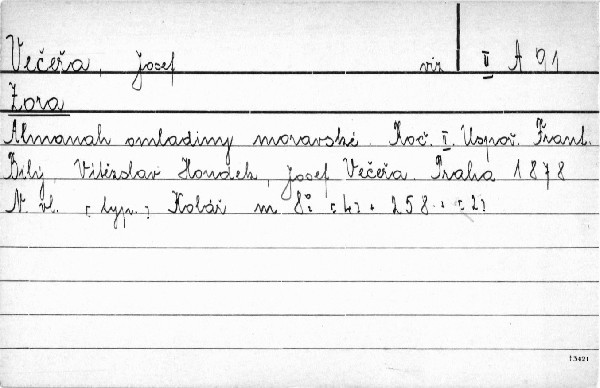 Večeřa, Josef viz II A 91
Zora
Almanah omladiny moravské. Roč. I. Uspoř. Frant.
Bílý, Vítězslav Houdek, Josef Večeřa. Praha 1878
N. vl. [typ.] Kolář m. 8° [4] + 258 + [2]
13421